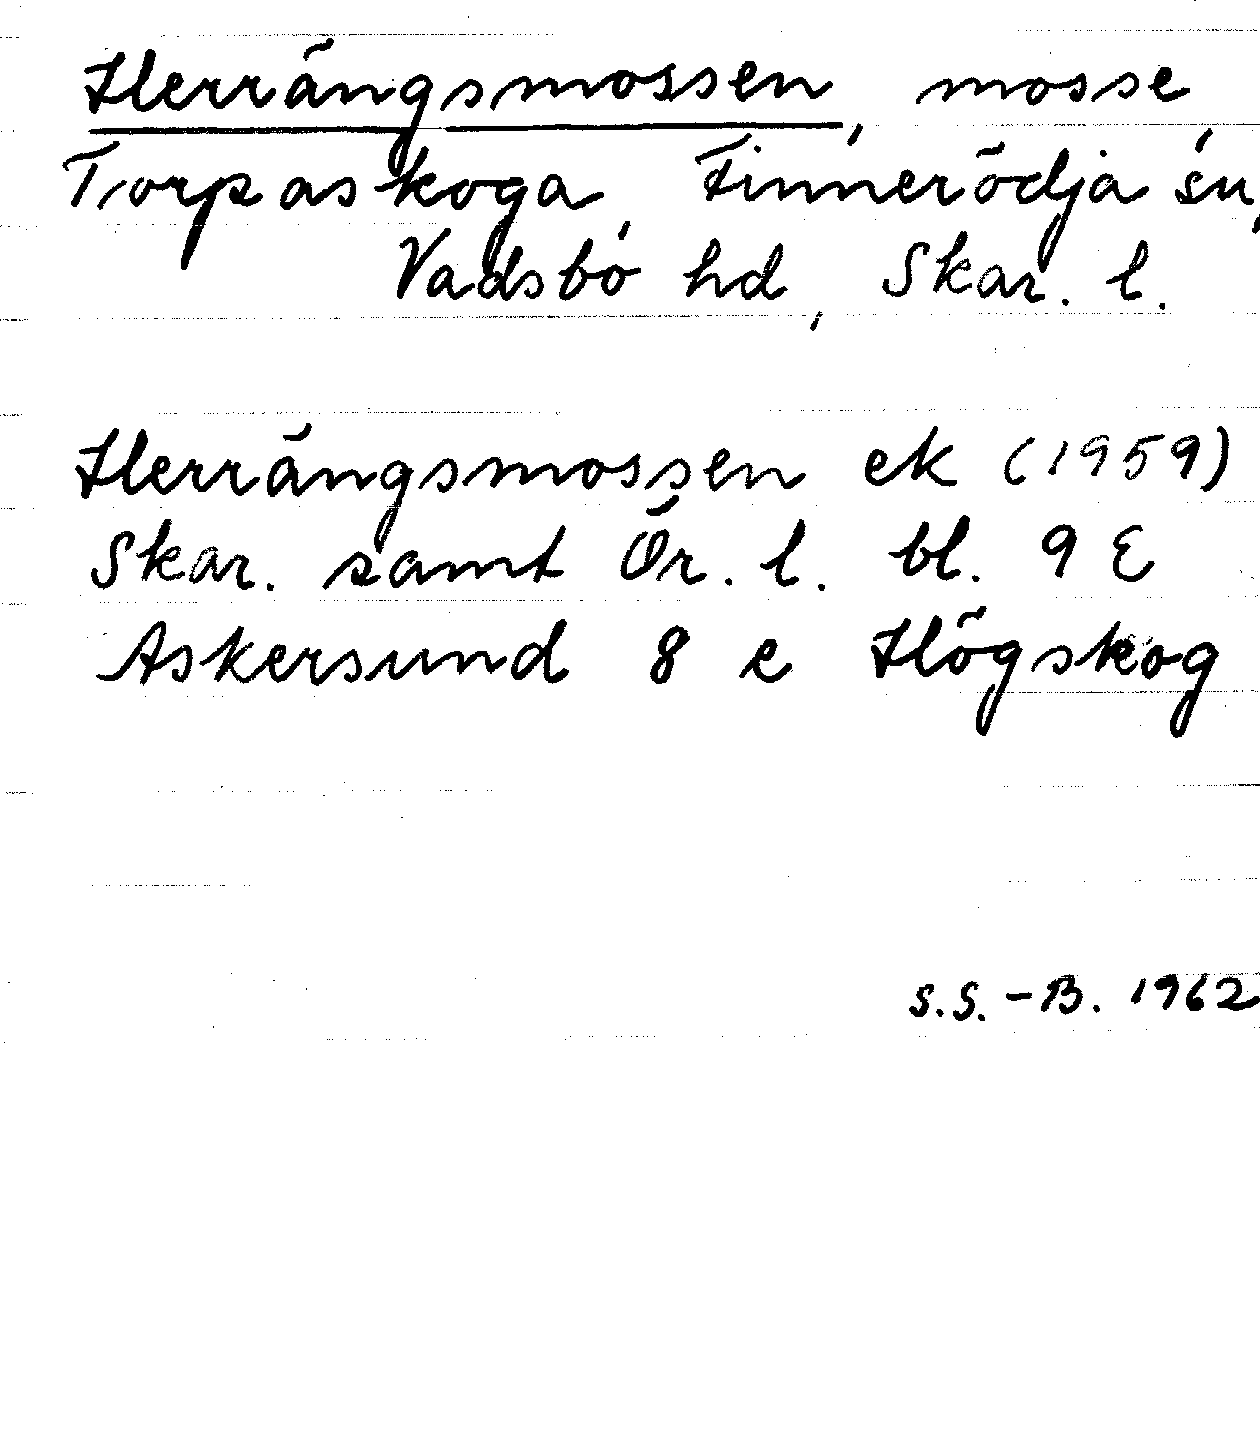 Herrängsmossen, mosse,
Torpaskoga, Finnerödja sn,
Vadsbo hd, Skar. l.
Herrängsmossen ek (1959)
Skar. samt Ör. l. bl. 9 E
Askersund 8 e Högskog
S.S.-B. 1962